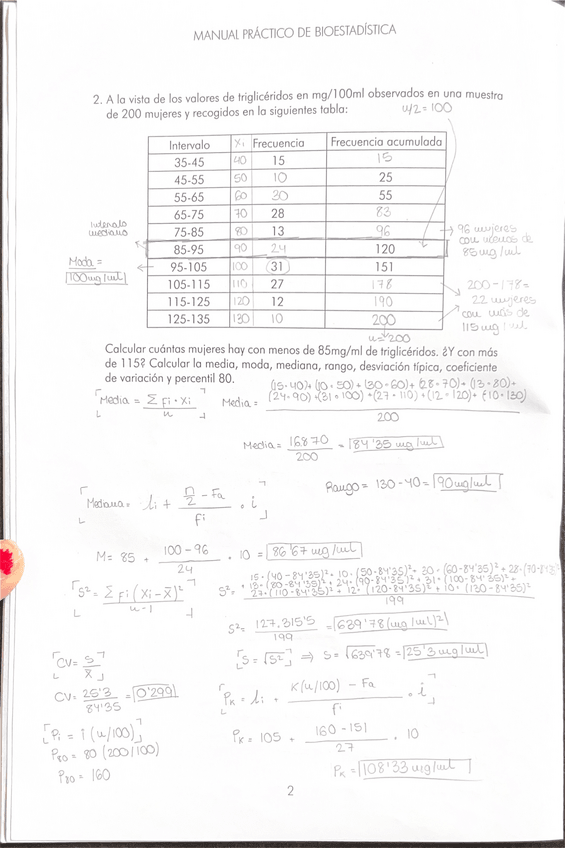 MANUAL PRÁCTICO DE BIOESTADÍSTICA
2. A la vista de los valores de triglicéridos en mg/100ml observados en una muestra
de 200 mujeres y recogidos en la siguientes tabla:
n/2 = 100
Intervalo xi Frecuencia Frecuencia acumulada
35-45 40 15 15
45-55 50 10 25
55-65 60 30 55
65-75 70 28 83
75-85 80 13 96
85-95 90 24 120
95-105 100 31 151
105-115 110 27 178
115-125 120 12 190
125-135 130 10 200
Intervalo
mediano
Moda =
100 mg/ml
96 mujeres
con menos de
85 mg/ml
200-178 =
22 mujeres
con más de
115 mg/ml
n = 200
Calcular cuántas mujeres hay con menos de 85mg/ml de triglicéridos. ¿Y con más
de 115? Calcular la media, moda, mediana, rango, desviación típica, coeficiente
de variación y percentil 80.
Media = Σ fi · xi / n
Media = (15·40) + (10·50) + (30·60) + (28·70) + (13·80) +
(24·90) + (31·100) + (27·110) + (12·120) + (10·130)
200
Media = 16870 / 200 = 84'35 mg/ml
Rango = 130 - 40 = 90 mg/ml
Mediana = li + n/2 - Fa / fi · i
M = 85 + 100 - 96 / 24 · 10 = 86'67 mg/ml
S² = Σ fi (xi - x̄)² / n-1
S² = 15·(40-84'35)² + 10·(50-84'35)² + 30·(60-84'35)² + 28·(70-84'35)²
+ 13·(80-84'35)² + 24·(90-84'35)² + 31·(100-84'35)² +
27·(110-84'35)² + 12·(120-84'35)² + 10·(130-84'35)²
199
S² = 127.315'5 / 199 = 639'78 (mg/ml)²
S = √S² ⇒ S = √639'78 = 25'3 mg/ml
CV = S / x̄
CV = 25'3 / 84'35 = 0'299
PK = li + K(n/100) - Fa / fi · i
Pi = i (n/100)
P80 = 80 (200/100)
P80 = 160
PK = 105 + 160 - 151 / 27 · 10
PK = 108'33 mg/ml
2